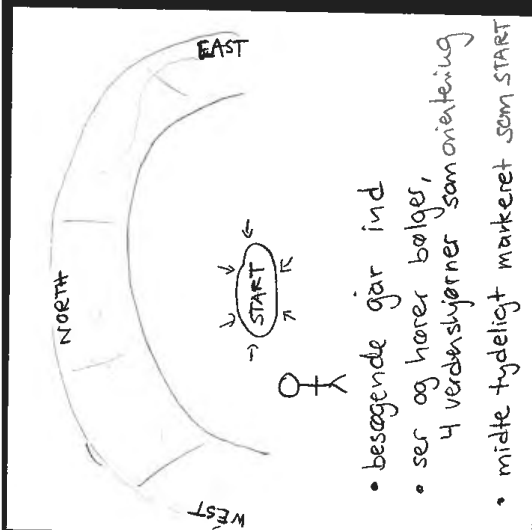 EAST
NORTH
WEST
START
• besøgende går ind
• ser og hører bølger,
4 verdenshjørner som orientering
• midte tydeligt markeret som START